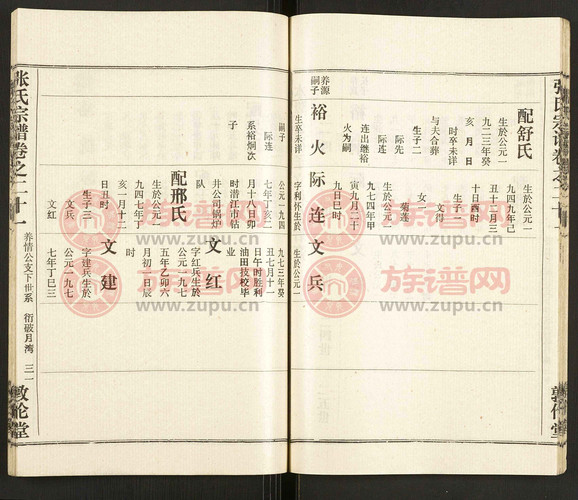 配舒氏
生於公元一
九二三年癸
亥 月 日
时卒未详
与夫合葬
生子二
际先
际连
生卒未详
嗣子
养源
裕火
火为嗣
连出继裕
女一
菊莲
生於公元一
九七四年甲
寅九月二十
九日巳时
际连
字利怀生於
公元一九四
七年丁亥二
月十八日卯
时潜江市钻
井公司锅炉
队
嗣子
际连
系裕炯次
子
生於公元一
九四九年己
丑十二月三
十日酉时
生子一
文得
文兵
字 兵生於公元一
九七三年癸
丑七月十一
日午时胜利
油田技校毕
业
配邢氏
生於公元一
九四七年丁
亥一月十二
日丑时
生子三
文兵
文红
文红
字红兵生於
公元一九七
五年乙卯六
月初一日辰
时
文建
字建兵生於
公元一九七
七年丁巳三
张氏宗谱卷之二十一
养情公支下世系 衍破月湾 三一
敦伦堂
族谱网
www.zupu.cn